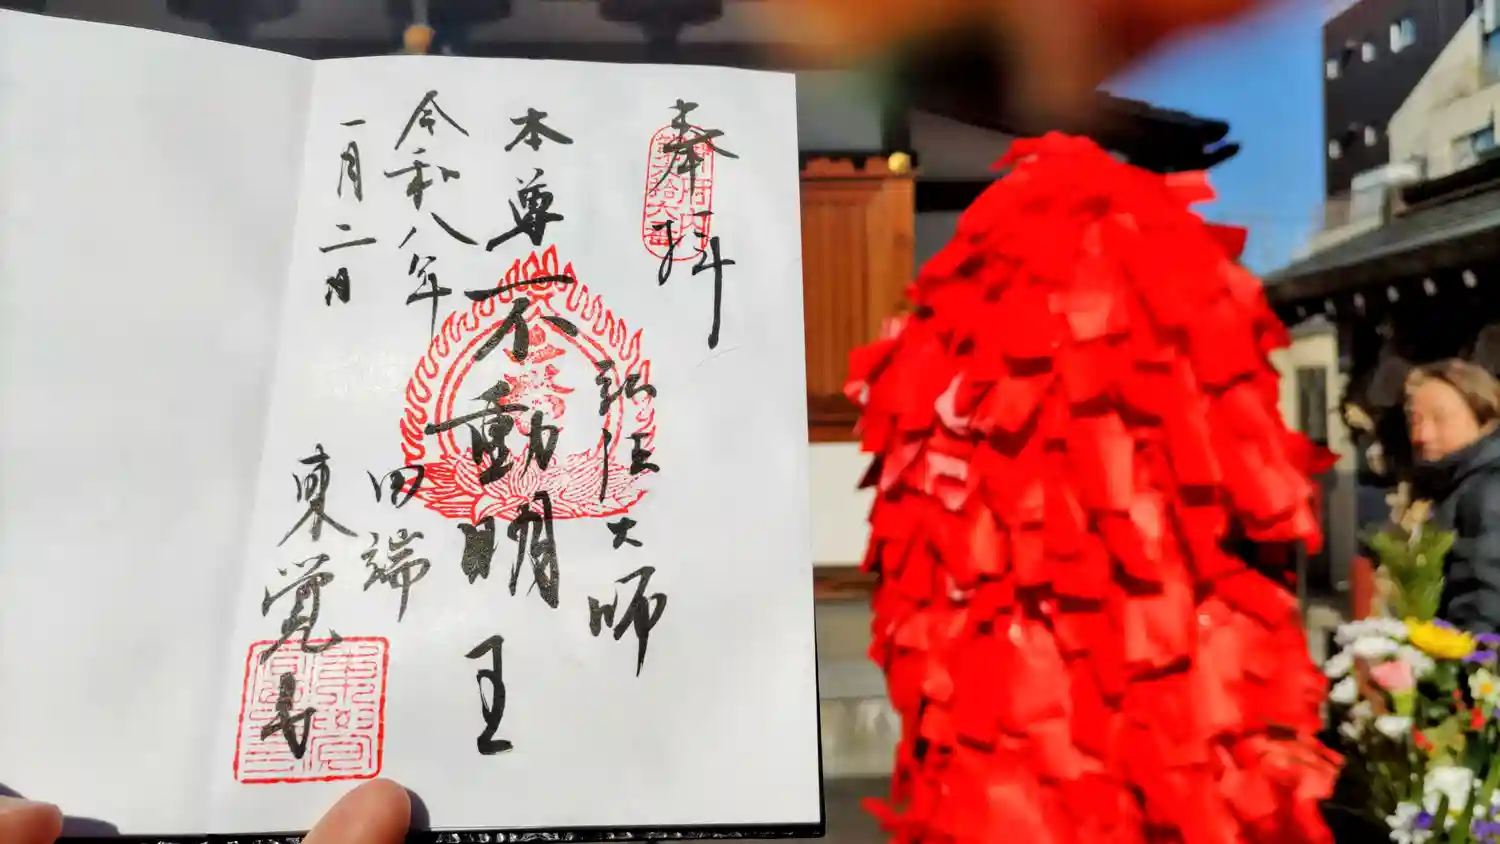 奉拝
弘法大師
本尊 不動明王
令和八年
一月二日
田端
東覚寺